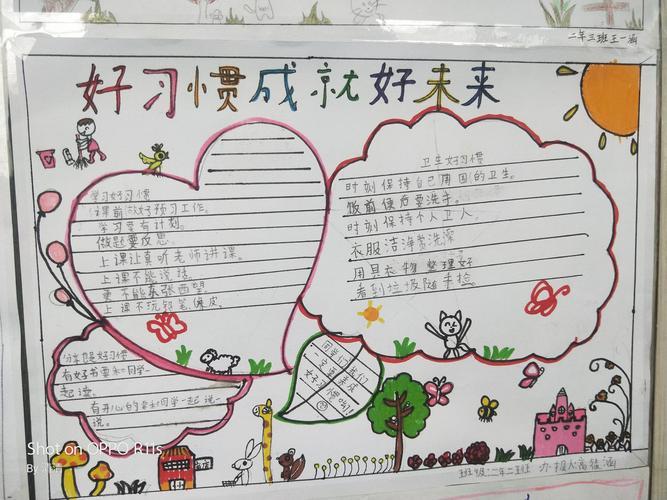 二年三班王一涵
好习惯成就好未来
学习好习惯
课前做好预习工作。
学习要有计划。
做题要反思。
上课认真听老师讲课。
上课不能说话。
更不能东张西望。
上课不玩铅笔、橡皮。
卫生好习惯
时刻保持自己周围的卫生。
饭前便后要洗手。
时刻保持个人卫人。
衣服洁净常洗澡
用具衣物整理好
看到垃圾随手捡。
分享是好习惯
有好书要和同学一
起读。
有开心的事和同学一起说一
说。
同学们我们
一定要养成
好习惯哟!
班级:二年二班 办报人高
Shot on OPPO R11s
By